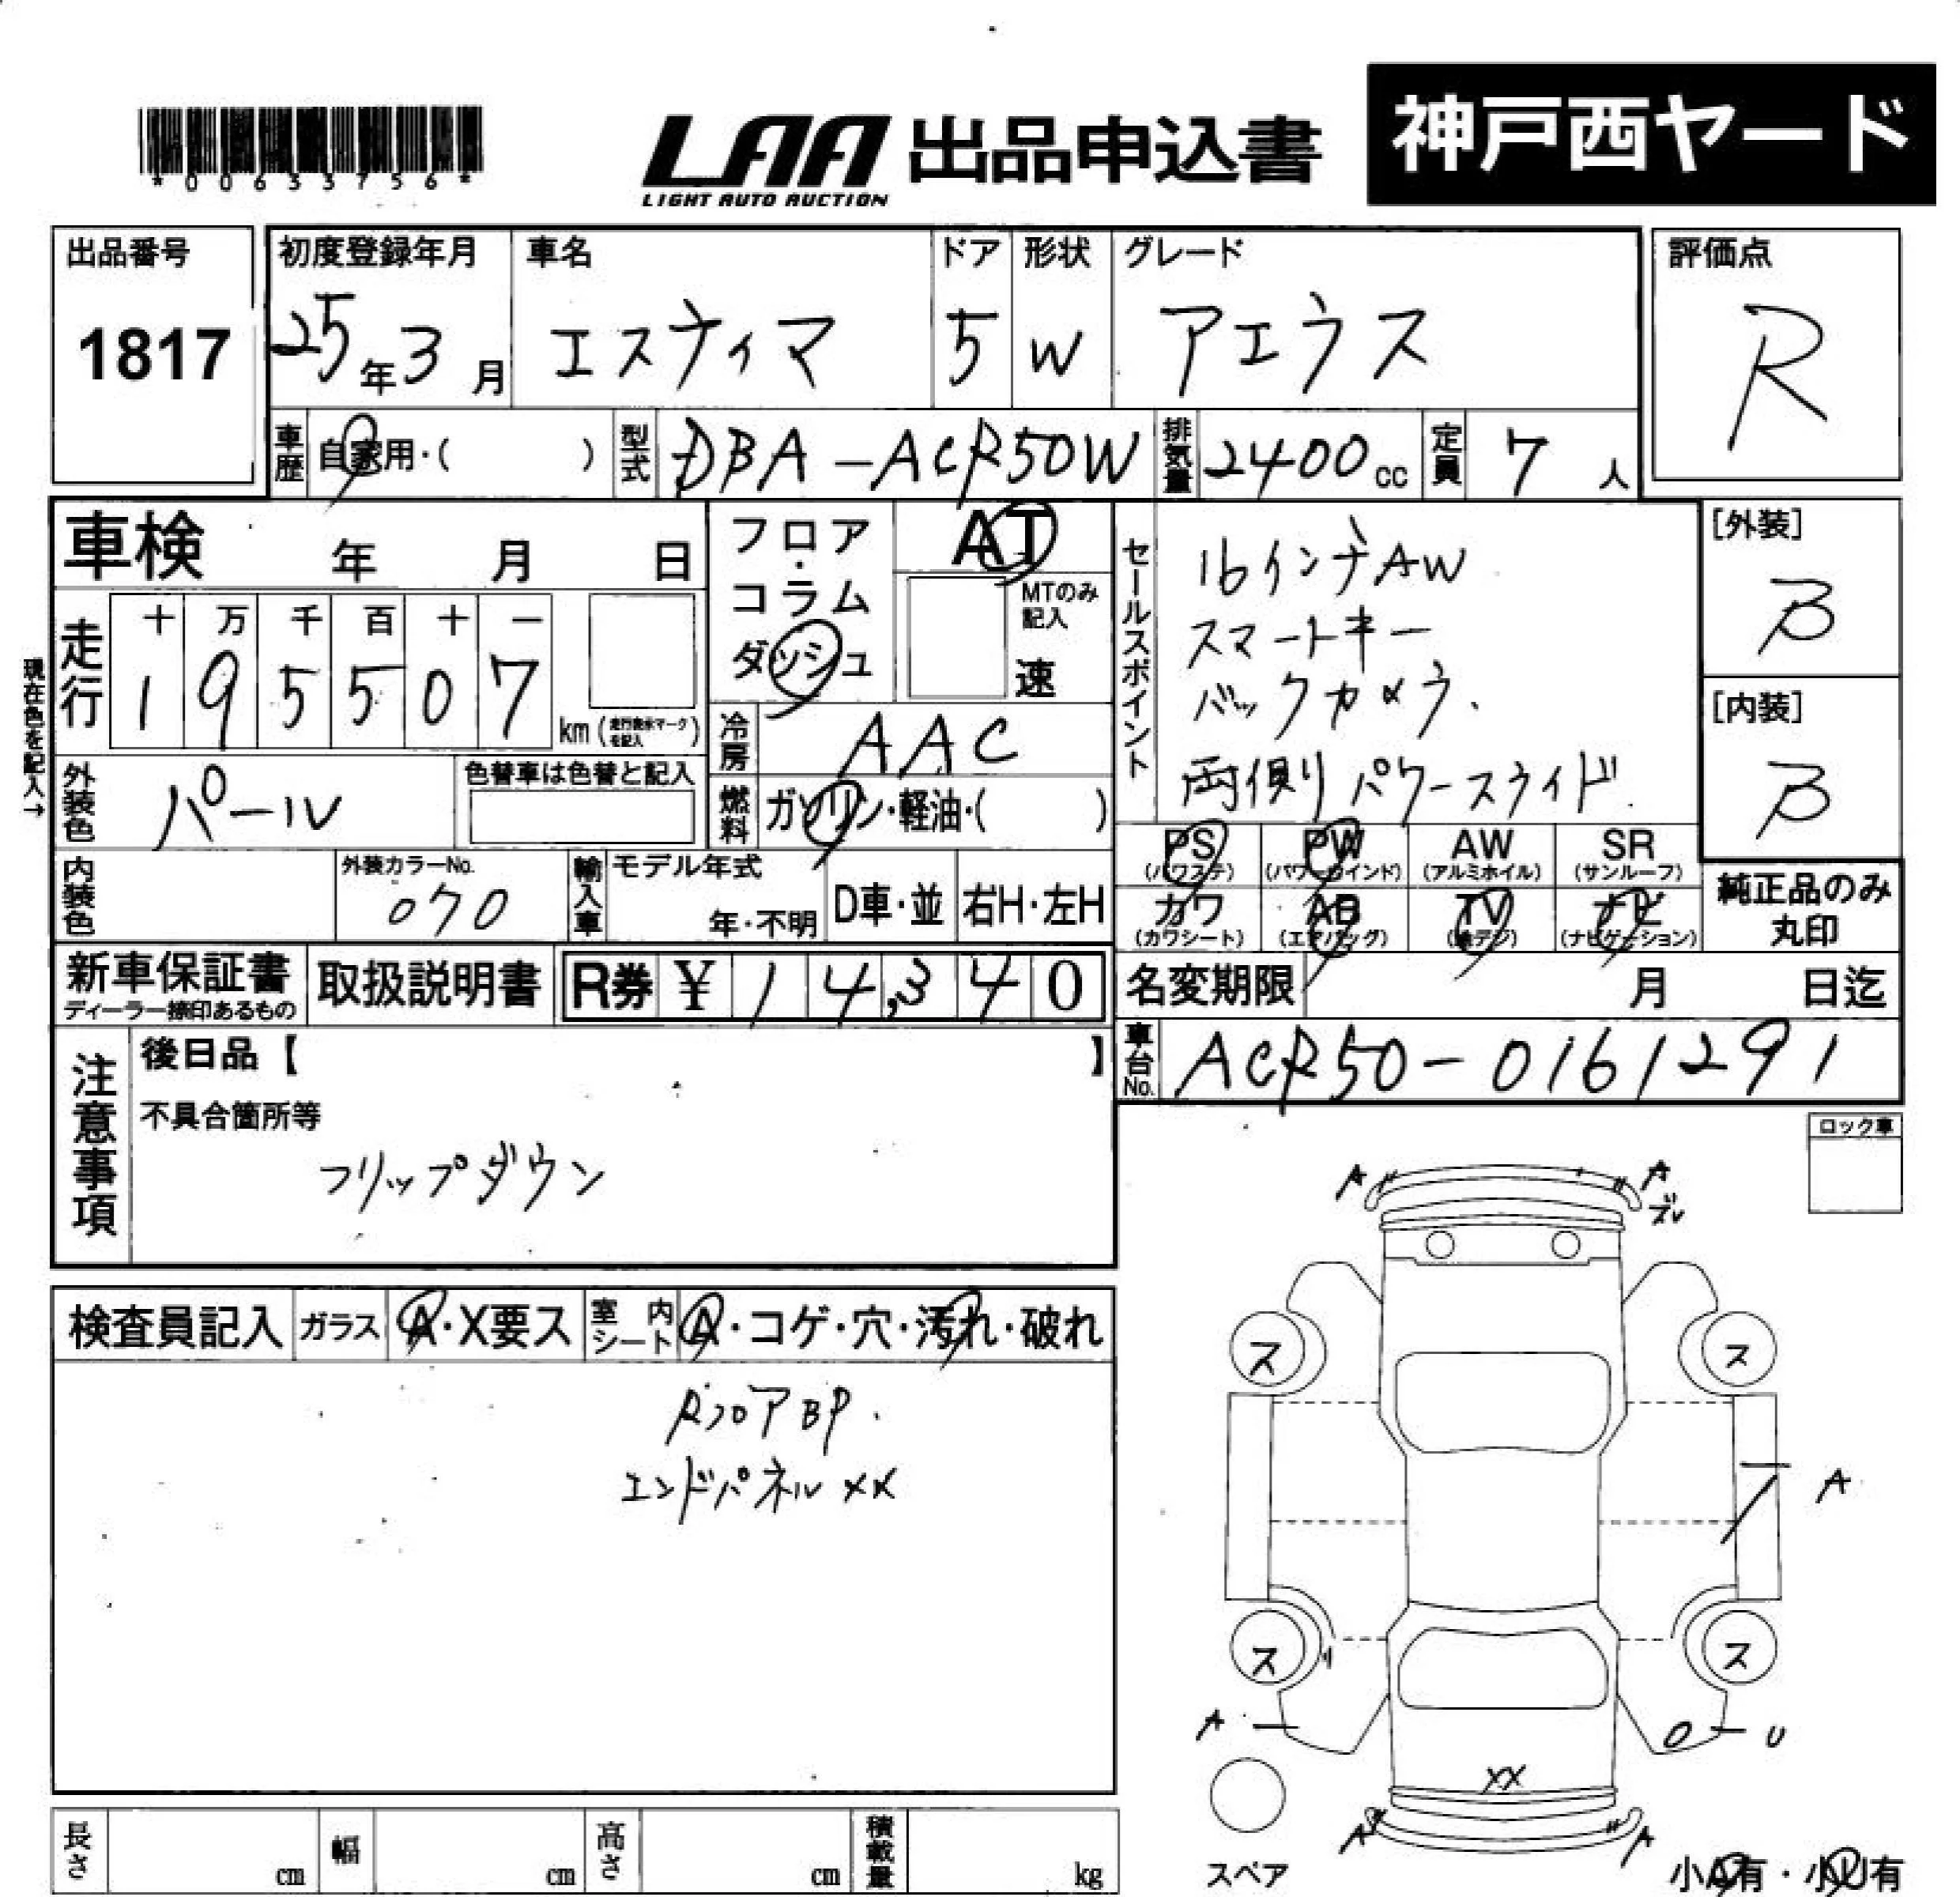 *00633756*
LAA 出品申込書
LIGHT AUTO AUCTION
神戸西ヤード
出品番号
1817
初度登録年月
25年3月
車名
エスティマ
ドア
5
形状
W
グレード
アエラス
評価点
R
車歴
自家用・( )
型式
DBA-ACR50W
排気量
2400cc
定員
7人
車検 年 月 日
フロア・コラム
ダッシュ
AT
MTのみ記入
速
セールスポイント
16インチAW
スマートキー
バックカメラ.
両側りパワースライド
[外装]
B
[内装]
B
現在色を記入→
走行
十 万 千 百 十 一
1 9 5 5 0 7
km(走行表示マークを記入)
冷房
AAC
外装色
パール
色替車は色替と記入
燃料
ガソリン・軽油・( )
PS
(パワステ)
PW
(パワーウインド)
AW
(アルミホイル)
SR
(サンルーフ)
カワ
(カワシート)
AB
(エアバッグ)
TV
(地デジ)
ナビ
(ナビゲーション)
純正品のみ
丸印
内装色
外装カラーNo.
070
輸入車
モデル年式
年・不明
D車・並
右H・左H
新車保証書
ディーラー捺印あるもの
取扱説明書
R券 ¥ 14,340
名変期限 月 日迄
車台No.
ACR50-0161291
注意事項
後日品【 】
不具合箇所等
フリップダウン
ロック車
検査員記入
ガラス
A・X要ス
室内シート
A・コゲ・穴・汚れ・破れ
RフロアBP.
エンドパネルXX
A
A
ズレ
ス
ス
A
ス
ス
A
U
XX
A
A
スペア
小A有・小U有
長さ cm
幅 cm
高さ cm
積載量 kg